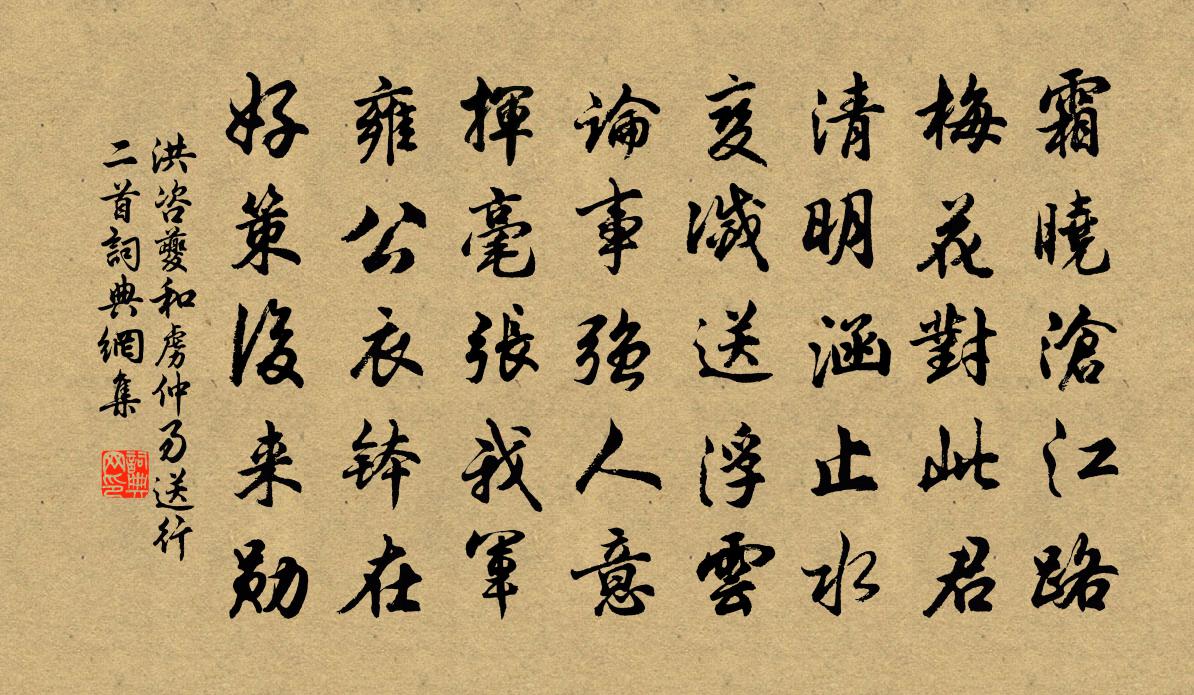 霜曉滄江路
梅花對此君
清明涵止水
变滅送浮雲
論事强人意
揮毫張我軍
雍公衣鉢在
好策後来勛
洪咨夔和虞仲易送行
二首詞典網集
詞典网印